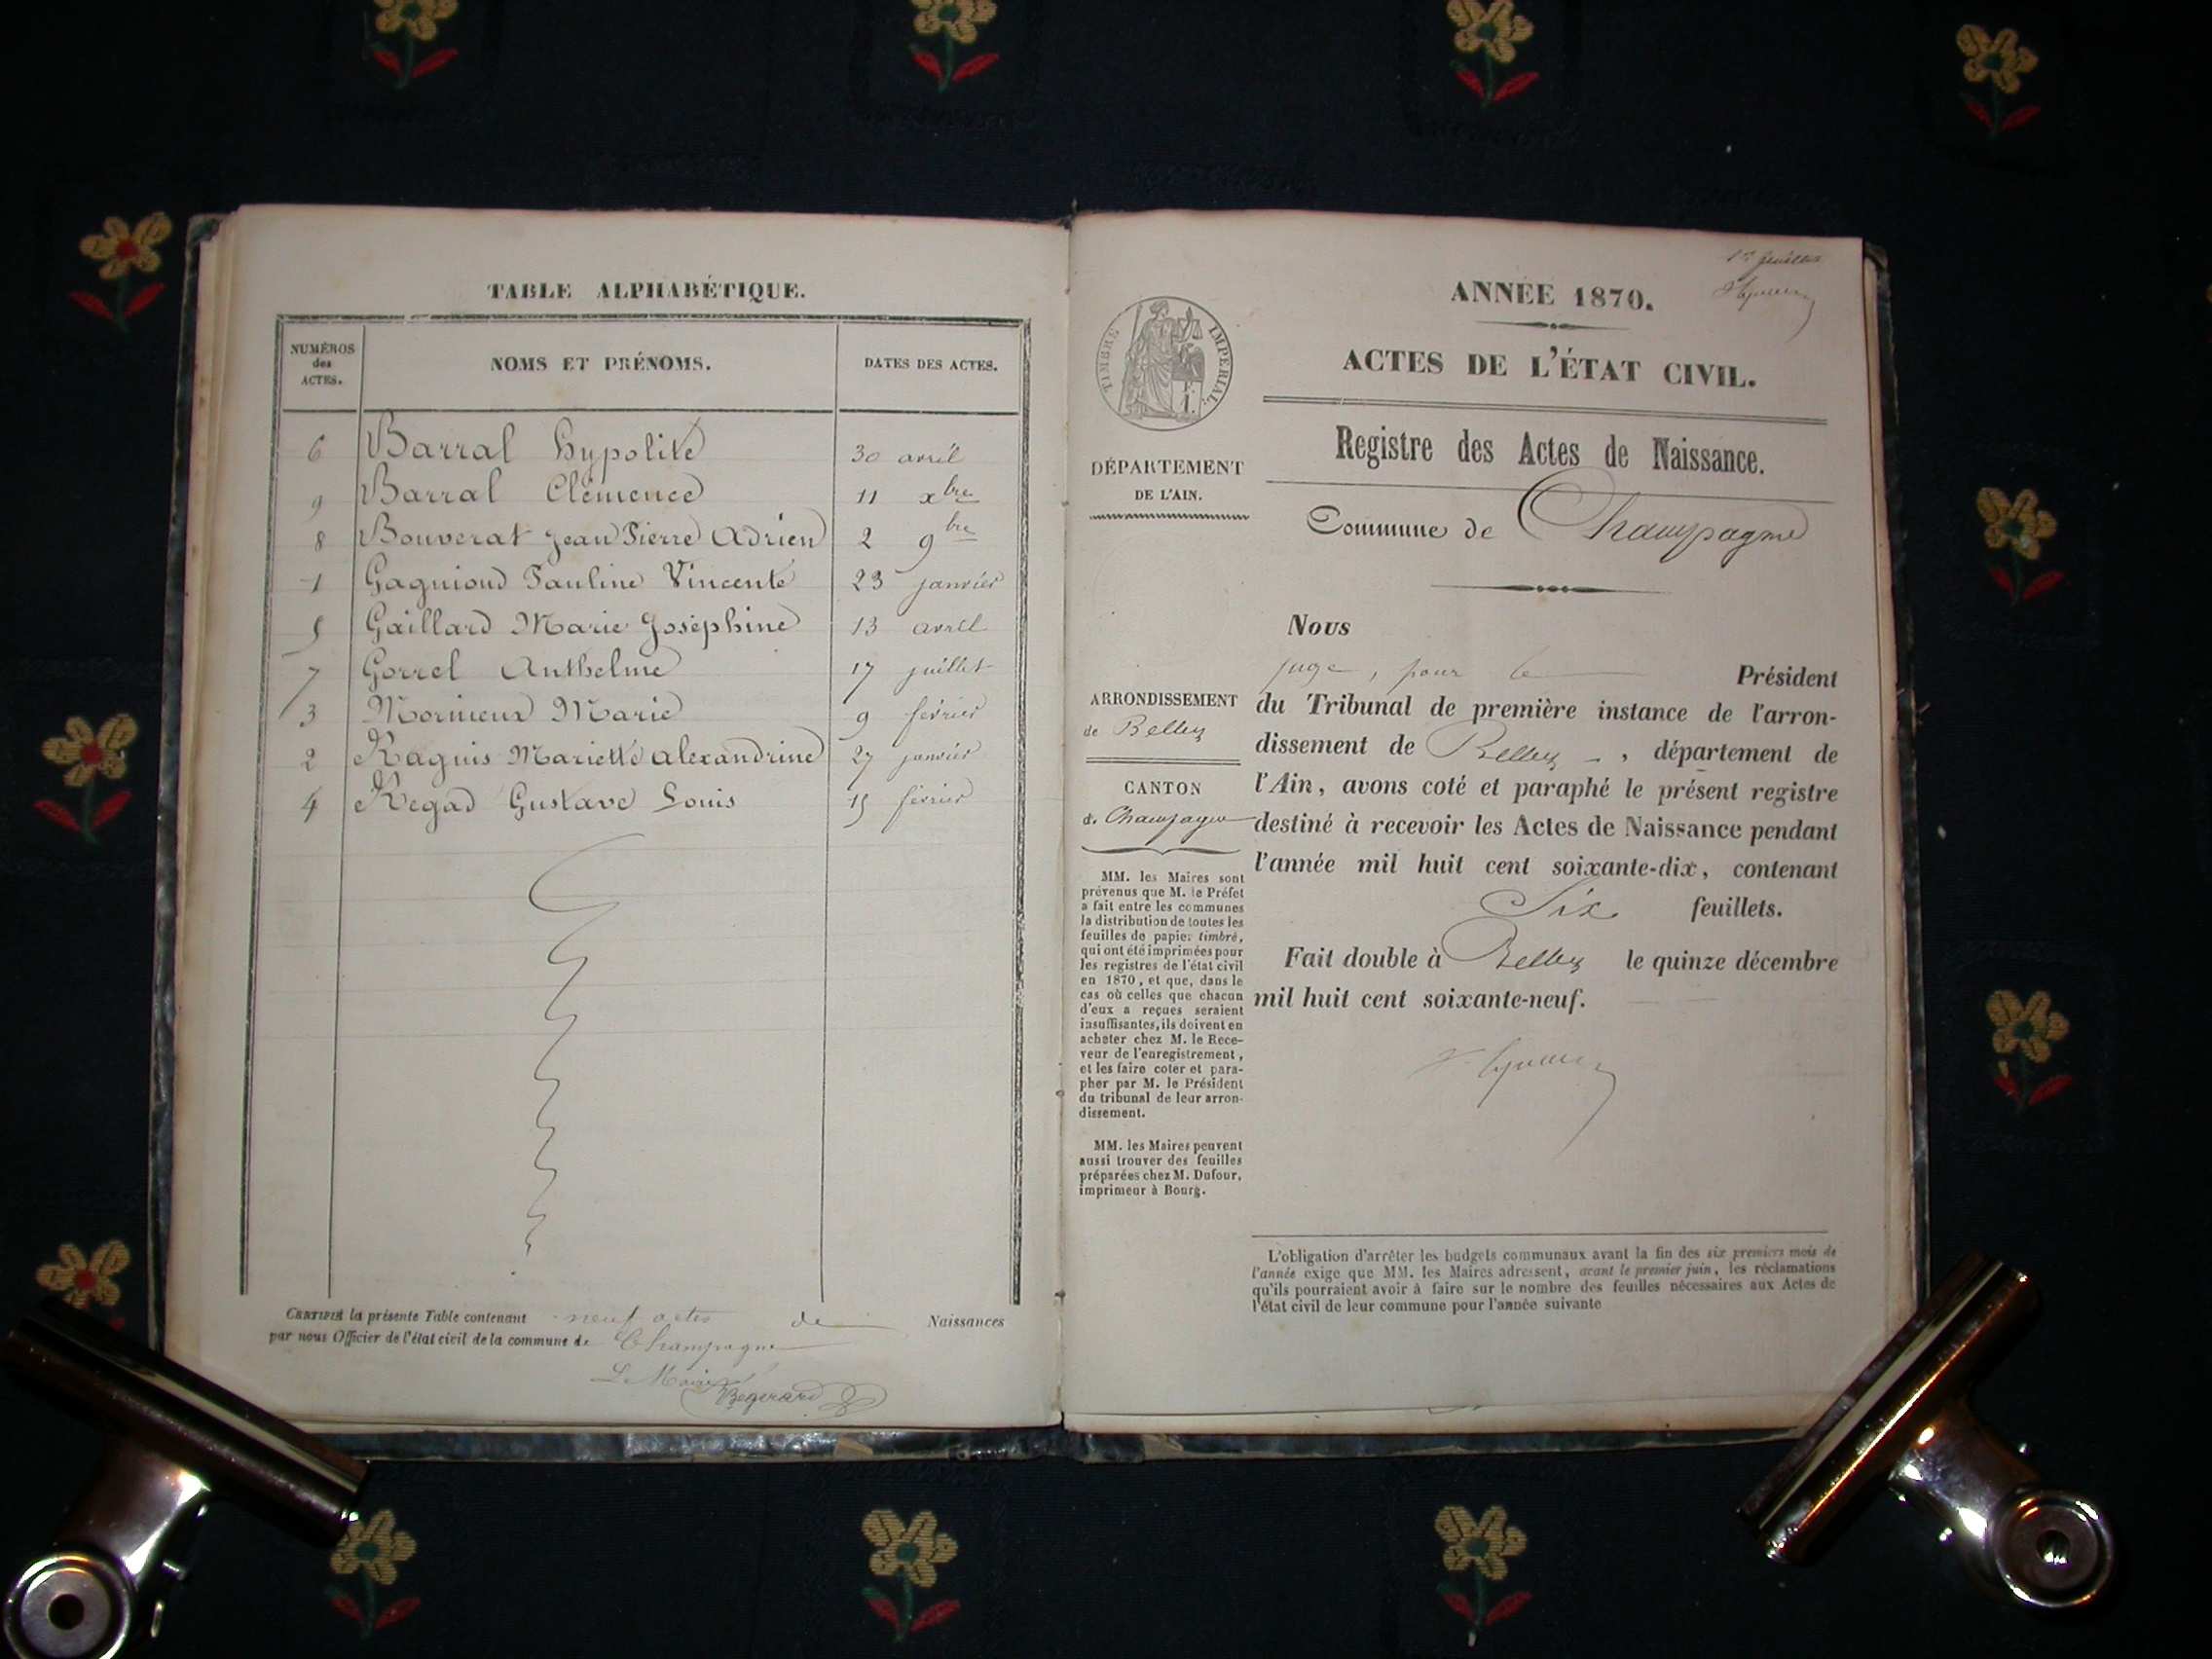 TABLE ALPHABÉTIQUE.
NUMÉROS
des
ACTES.
NOMS ET PRÉNOMS.
DATES DES ACTES.
6 Barral hypolite 30 avril
9 Barral Clémence 11 xbre
8 Bouverat Jean Pierre Adrien 2 9bre
1 Gagnioud Pauline Vincente 23 janvier
5 Gaillard Marie Joséphine 13 avril
7 Gorrel Anthelme 17 juillet
3 Mornieux Marie 9 février
2 Raguis Mariette alexandrine 27 janvier
4 Regad Gustave Louis 15 février
CERTIFIÉ la présente Table contenant neuf actes de Naissances
par nous Officier de l'état civil de la commune de Champagne
Le Maire
1er feuillet
ANNÉE 1870.
ACTES DE L'ÉTAT CIVIL.
TIMBRE IMPÉRIAL
Registre des Actes de Naissance.
Commune de Champagne
DÉPARTEMENT
DE L'AIN.
ARRONDISSEMENT
de Belley
CANTON
de Champagne
MM. les Maires sont
prévenus que M. le Préfet
a fait entre les communes
la distribution de toutes les
feuilles de papier timbré,
qui ont été imprimées pour
les registres de l'état civil
en 1870, et que, dans le
cas où celles que chacun
d'eux a reçues seraient
insuffisantes, ils doivent en
acheter chez M. le Rece-
veur de l'enregistrement,
et les faire coter et para-
pher par M. le Président
du tribunal de leur arron-
dissement.
MM. les Maires peuvent
aussi trouver des feuilles
préparées chez M. Dufour,
imprimeur à Bourg.
Nous
juge, pour le Président
du Tribunal de première instance de l'arron-
dissement de Belley, département de
l'Ain, avons coté et paraphé le présent registre
destiné à recevoir les Actes de Naissance pendant
l'année mil huit cent soixante-dix, contenant
Six feuillets.
Fait double à Belley le quinze décembre
mil huit cent soixante-neuf.
L'obligation d'arrêter les budgets communaux avant la fin des six premiers mois de
l'année exige que MM. les Maires adressent, avant le premier juin, les réclamations
qu'ils pourraient avoir à faire sur le nombre des feuilles nécessaires aux Actes de
l'état civil de leur commune pour l'année suivante